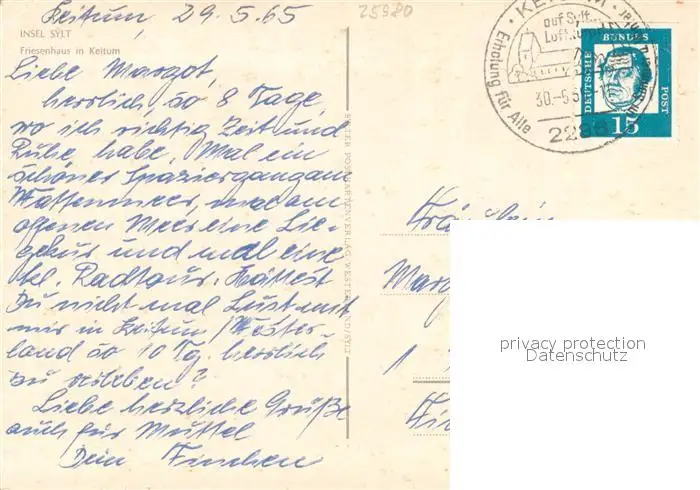 Keitum, 29.5.65
25980
INSEL SYLT
Friesenhaus in Keitum
Liebe Margot,
herrlich, so 8 Tage,
wo ich richtig Zeit und
Ruhe habe. Mal ein
schöner Spaziergang am
Wattenmeer, mal am
offenen Meer eine Lie-
gekur und mal eine
kl. Radtour. Hättest
Du nicht mal Lust mit
mir in Keitum/Wester-
land so 10 Tg. herrlich
zu erleben?
Liebe herzliche Grüße
auch für Muttel
Dein Finchen
SYLTER POSTKARTENVERLAG WESTERLAND/SYLT
KEITUM
auf Sylt
Luftkurort
Erholung für Alle
30.-5.
2286
DEUTSCHE BUNDESPOST
15
Fräulein
Marg
1
privacy protection
Datenschutz